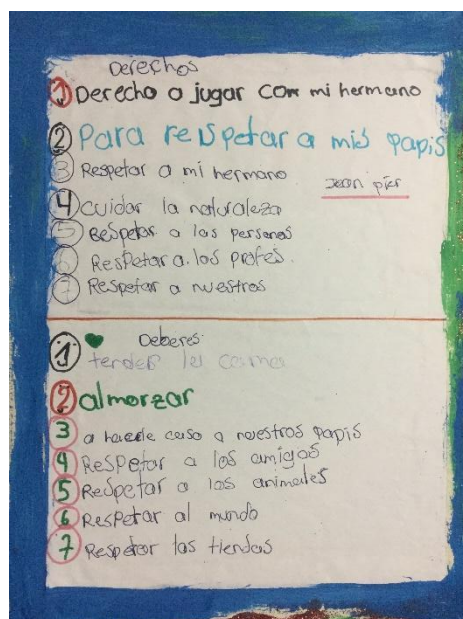 Derechos
1 Derecho a jugar con mi hermano
2 Para respetar a mis papis
3 Respetar a mi hermano
Jean pier
4 cuidar la naturaleza
5 Respetar a las personas
6 Respetar a los profes.
7 Respetar a nuestros
Deberes:
1 tender la cama
2 almorzar
3 a hacerle caso a nuestros papis
4 Respetar a los amigos
5 Respetar a los animales
6 Respetar al mundo
7 Respetar las tiendas